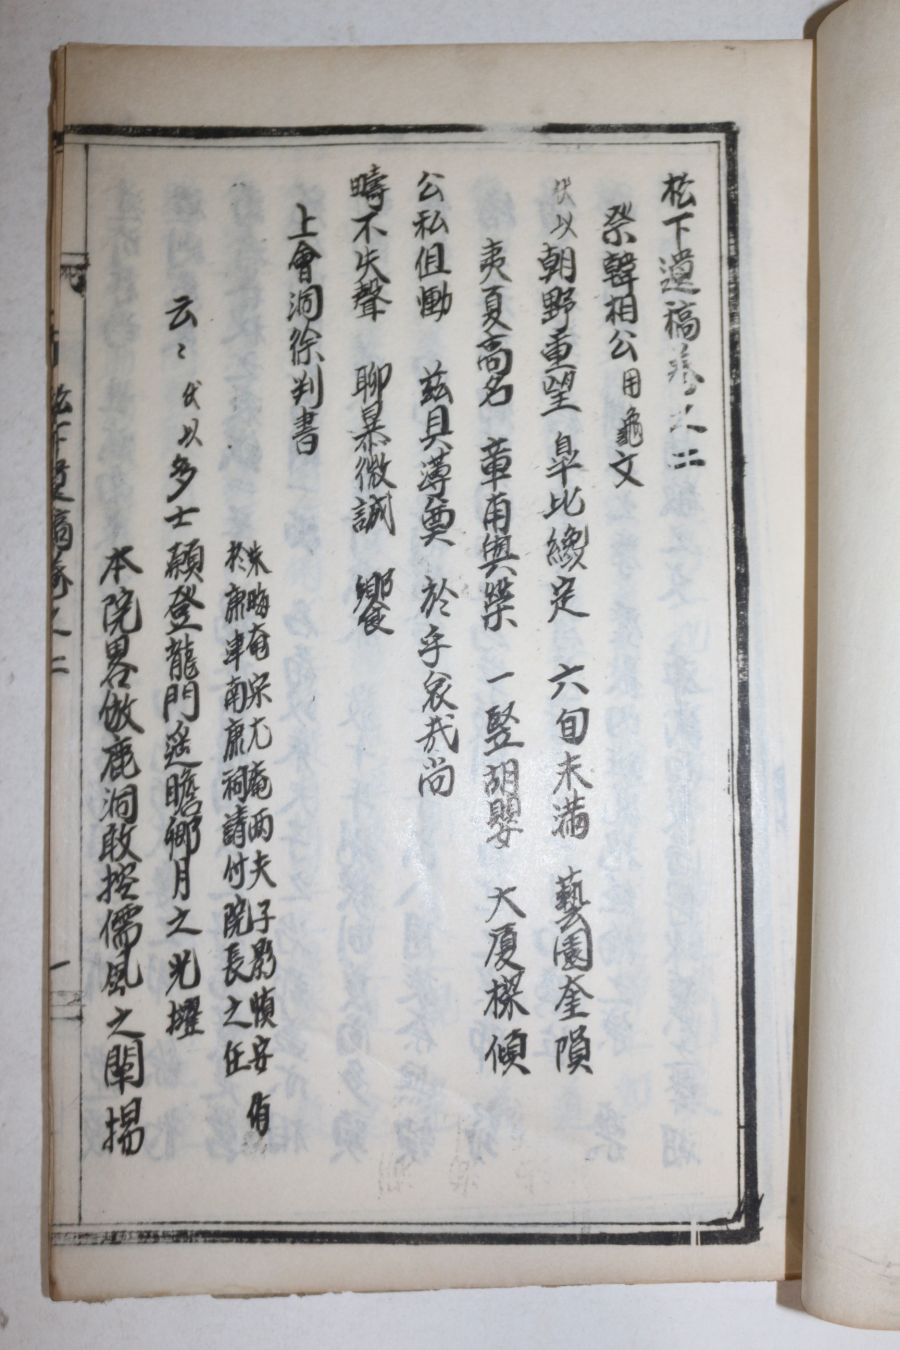 松下遺稿卷之二
祭韓相公用龜文
伏以朝野重望 皐比纔定 六旬未滿 藝園奎隕
夷夏高名 章甫與榮 一竪胡嬰 大厦樑傾
公私俱慟 玆具薄奠 於乎哀哉尙
疇不失聲 聊暴微誠 饗
上會洞徐判書
朱晦菴宋尤菴兩夫子影幀安侑
於肅津南肅祠請付院長之任
云〻 伏以多士願登龍門遥瞻鄕月之光耀
本院畧倣鹿洞敢揆儒風之闡揚
松下遺稿卷之二
一